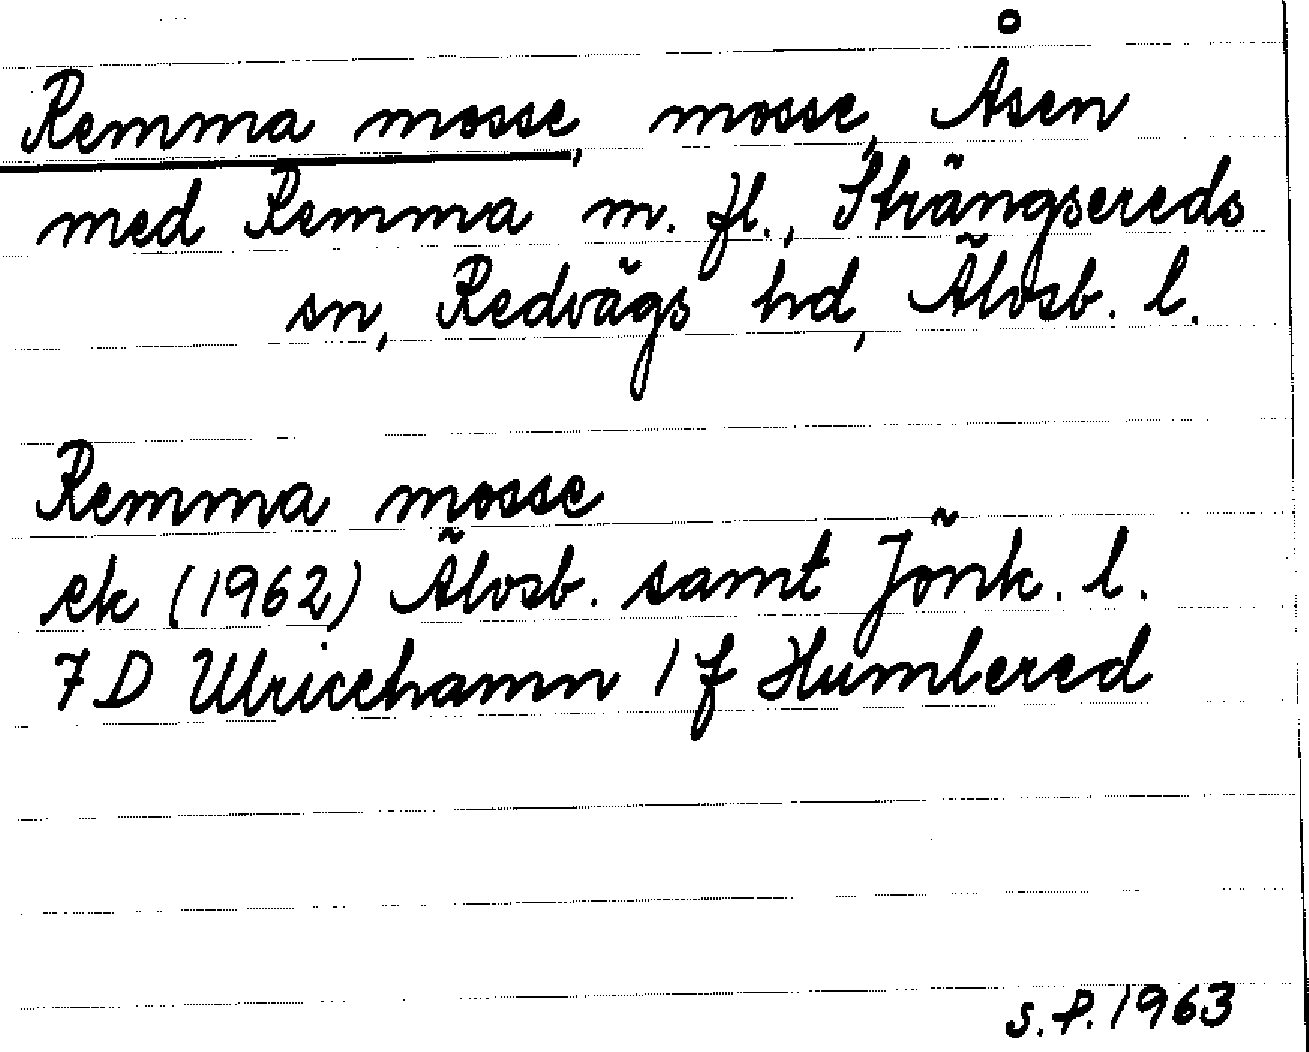 Remma mosse, mosse, Åsen
med Remma m. fl., Strängsereds
sn, Redvägs hd, Älvsb. l.
Remma mosse
ek (1962) Älvsb. samt Jönk. l.
7 D Ulricehamn 1 f Humlered
S.P. 1963